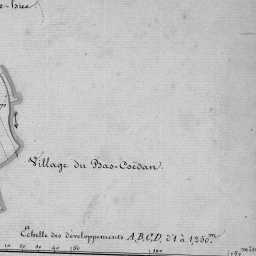 Village du Bas-Coëdan.
Échelle des développements A, B, C, D, d'1 à 1,250.m
10 20 30 40 50 100